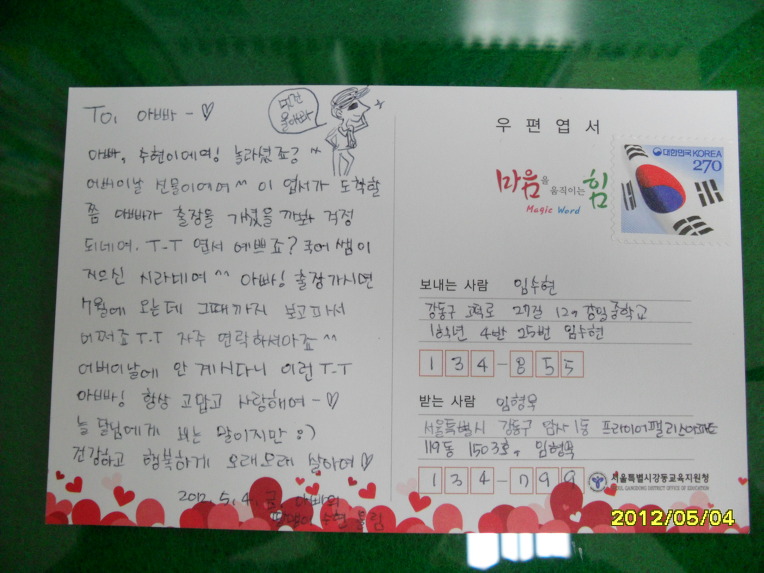 TO, 아빠 - ♡
멋진
울아빠
아빠, 수현이에여! 놀라셨죠? ^^
어버이날 선물이에여^^ 이 엽서가 도착할
쯤 아빠가 출장을 가셨을까봐 걱정
되네여. T-T 엽서 예쁘죠? 국어쌤이
지으신 시라네여 ^^ 아빠! 출장가시면
7월에 오는데 그때까지 보고파서
어쩌죠 T.T 자주 연락하셔야죠 ^^
어버이날에 안 계시다니 이런 T-T
아빠! 항상 고맙고 사랑해여 - ♡
늘 달님에게 비는 말이지만 :)
건강하고 행복하게 오래오래 살아여 ♡
2012. 5. 4. 금 아빠의
수현 올림
우편엽서
대한민국 KOREA
270
마음을 움직이는 힘
Magic Word
보내는 사람 임수현
강동구 27길 12, 강일중학교
1학년 4반 25번 임수현
134-855
받는 사람 임형욱
서울특별시 강동구 암사1동 프라이어팰리스아파트
119동 1503호, 임형욱
134-799
서울특별시강동교육지원청
SEOUL GANGDONG DISTRICT OFFICE OF EDUCATION
2012/05/04